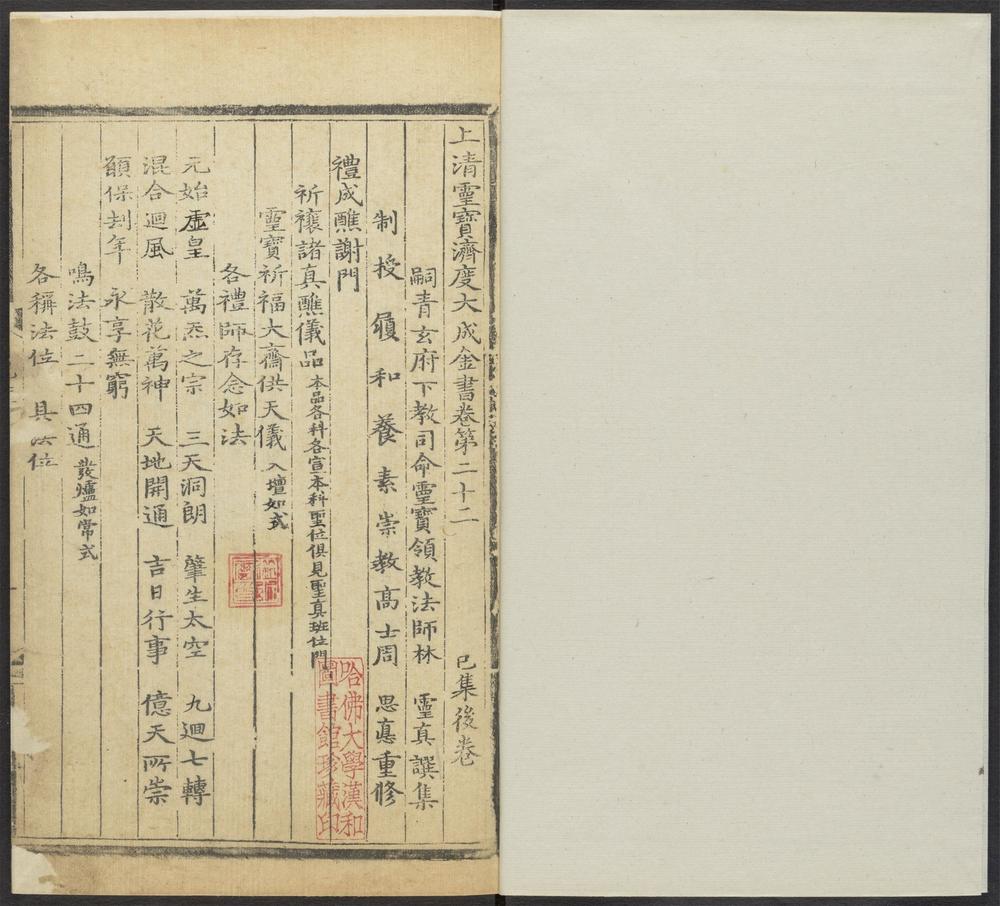 上清靈寶濟度大成金書卷第二十二 巳集後卷
嗣青玄府下教司命靈寶領教法師林 靈真譔集
制授履和養素崇教高士周 思惪重修
禮成醮謝門
祈禳諸真醮儀品 本品各科各宣本科聖位俱見聖真班位門
靈寶祈福大齋供天儀 入壇如式
各禮師存念如法
元始虛皇 萬炁之宗 三天洞朗 肇生太空 九廻七轉
混合廻風 散花萬神 天地開通 吉日行事 億天所崇
願保刼年 永享無窮
鳴法鼓二十四通 發爐如常式
各稱法位 具法位
哈佛大學漢和
圖書館珍藏印